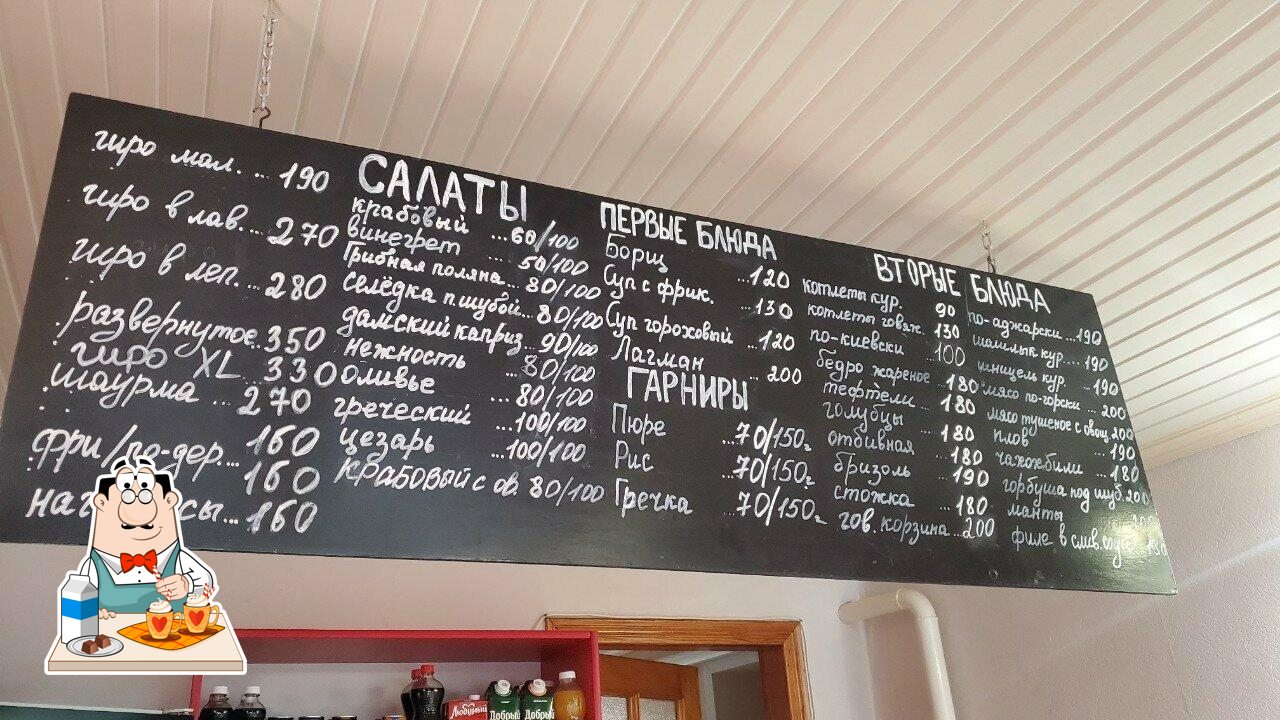 гиро мал. ... 190
гиро в лав. ... 270
гиро в леп. ... 280
развернутое. 350
гиро XL ... 330
шаурма ... 270
160
фри/по-дер... 160
сы... 160
САЛАТЫ
крабовый ... 60/100
винегрет ... 50/100
Грибная поляна ... 80/100
селёдка п шубой... 80/100
дамский каприз ... 90/100
нежность ... 80/100
оливье ... 80/100
греческий ... 100/100
цезарь ... 100/100
крабовый с ов. 80/100
ПЕРВЫЕ БЛЮДА
Борщ ... 120
Суп с фрик. ... 130
Суп гороховый ... 120
Лагман ... 200
ГАРНИРЫ
Пюре ... 70/150г
Рис ... 70/150г
Гречка ... 70/150г
ВТОРЫЕ БЛЮДА
котлеты кур. 90
котлеты говяж. 130
по-киевски 100
бедро жареное 180
тефтели ... 180
голубцы
отбивная 180
бризоль 180
стожка 190
180
гов. корзина ... 200
по-аджарски ... 190
шашлык кур. ... 190
шницель кур. 190
мясо по-горски ... 200
мясо тушеное с овощ. 200
плов 190
чахохбили ... 180
горбуша под шуб. 200
манты 200
филе в слив. соусе
Любимый
Добрый
Добрый